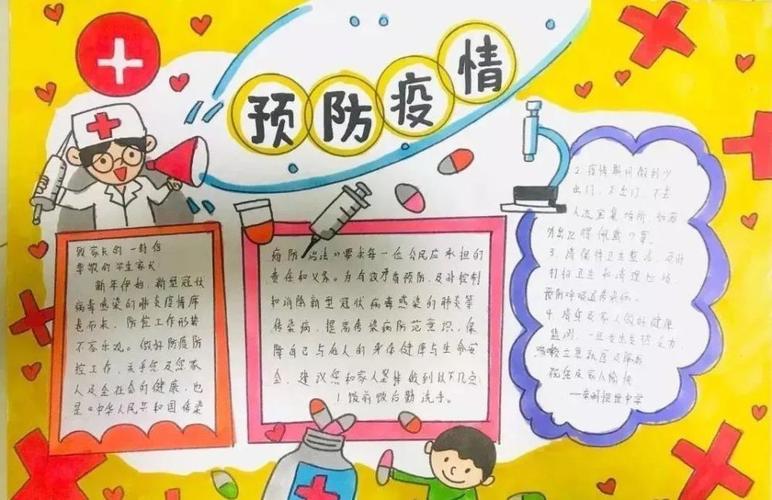 预防疫情
致家长的一封信
尊敬的学生家长
新年伊始，新型冠状
病毒感染的肺炎疫情席
卷而来，防控工作形势
不容乐观。做好防疫防
控工作，关乎您及您家
人及全社会的健康，也
是《中华人民共和国传染
病防治法》要求每一位公民应承担的
责任和义务。为有效预防，及时控制
和消除新型冠状病毒感染的肺炎等
传染病，提高传染病防范意识，保
障自己与他人的身体健康与生命安
全，建议您和家人坚持做到以下几点：
1 饭前便后勤洗手。
2.疫情期间做到少
出门，不出门，不去
人流密集场所，如需
外出必须佩戴口罩。
3.请保持卫生整洁，及时
打扫卫生和清理垃圾
预防呼吸道传染病。
4.请您及家人做好健康
监测，一旦发生发热、乏力
祝您及家人愉快